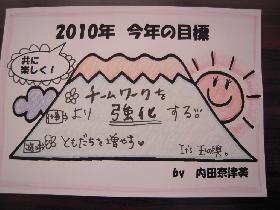 2010年 今年の目標
共に
楽しく!
チームワークを
より 強化 する
ともだちを増やす
by 内田奈津美